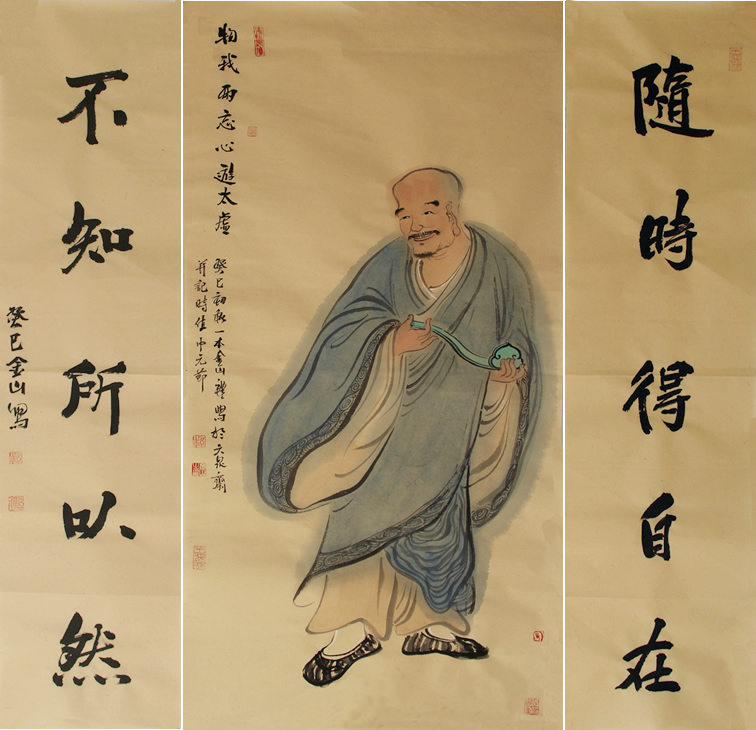 隨時得自在
物我兩忘心遊太虛
癸巳初秋一木金山寫於泉齋
并記時值中元節
不知所以然
癸巳金山寫